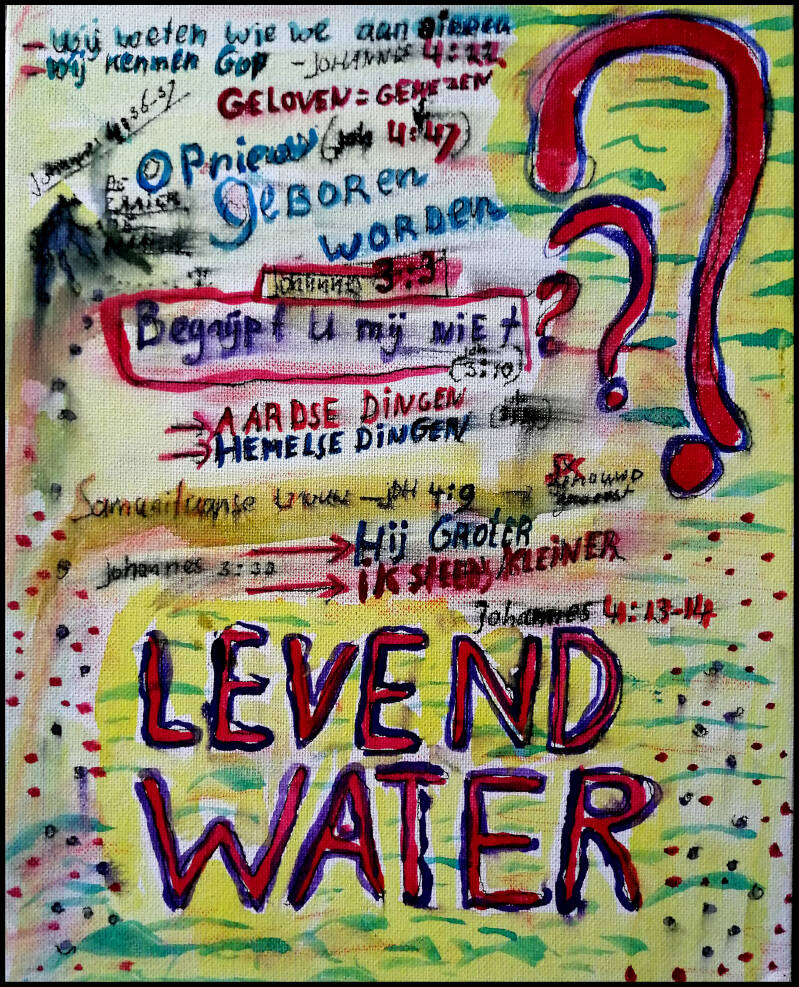 - Wij weten wie we aanbidden
- Wij kennen God - JOHANNES 4:22
GELOVEN = GENEZEN
Johannes 4:36-37
OPnieuw (Joh 4:47)
GEBOREN
WORDEN
Johannes 3:3
Begrijpt U mij NiEt
(Joh 3:10)
→ AARDSE DiNGEN
→ HEMELSE DiNGEN
Samaritaanse vrouw - JH 4:9
5x
getrouwd
geweest
Johannes 3:30 → Hij GROTER
→ iK steeds KLEINER
Johannes 4:13-14
LEVEND
WATER